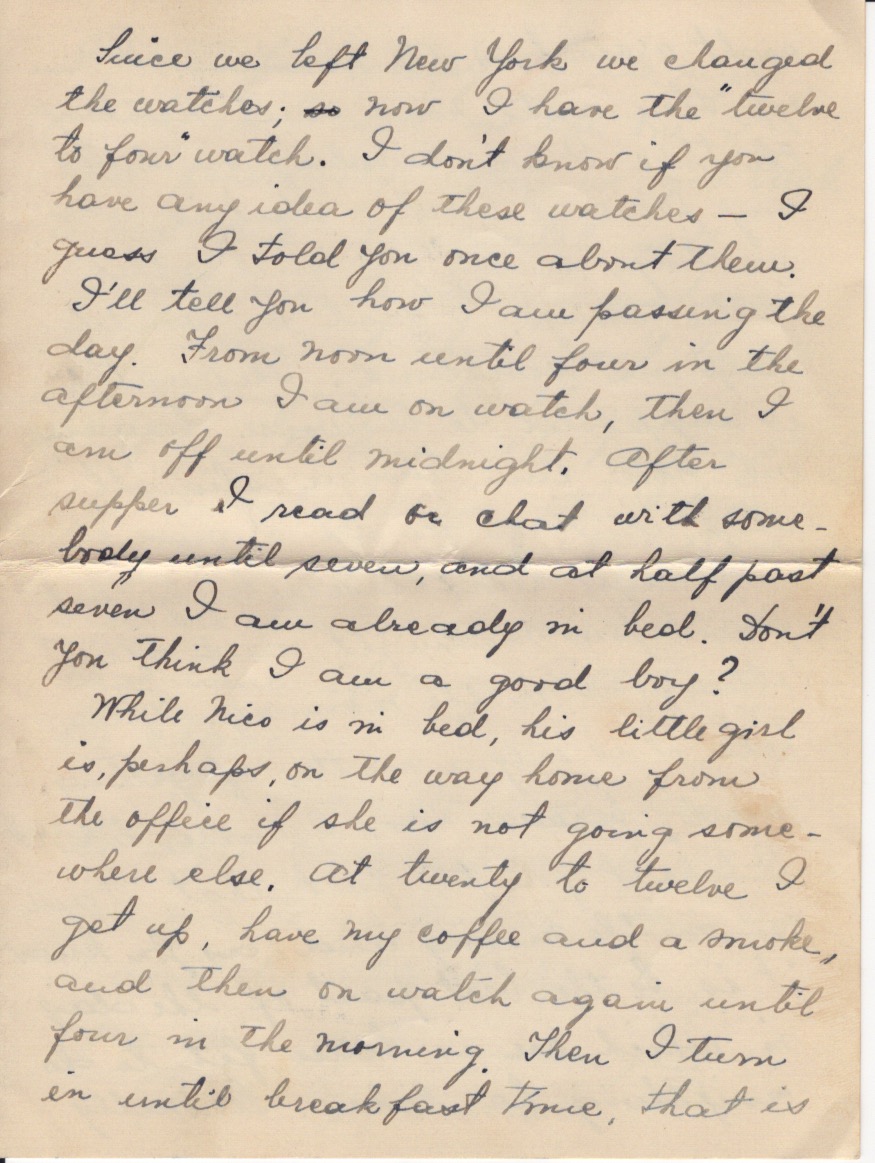 Since we left New York we changed
the watches; so now I have the "twelve
to four" watch. I don't know if you
have any idea of these watches – I
guess I told you once about them.
I'll tell you how I am passing the
day. From noon until four in the
afternoon I am on watch, then I
am off until midnight. After
supper I read or chat with some-
body until seven, and at half past
seven I am already in bed. Don't
you think I am a good boy?
While Nico is in bed, his little girl
is, perhaps, on the way home from
the office if she is not going some-
where else. At twenty to twelve I
get up, have my coffee and a smoke,
and then on watch again until
four in the morning. Then I turn
in until breakfast time, that is